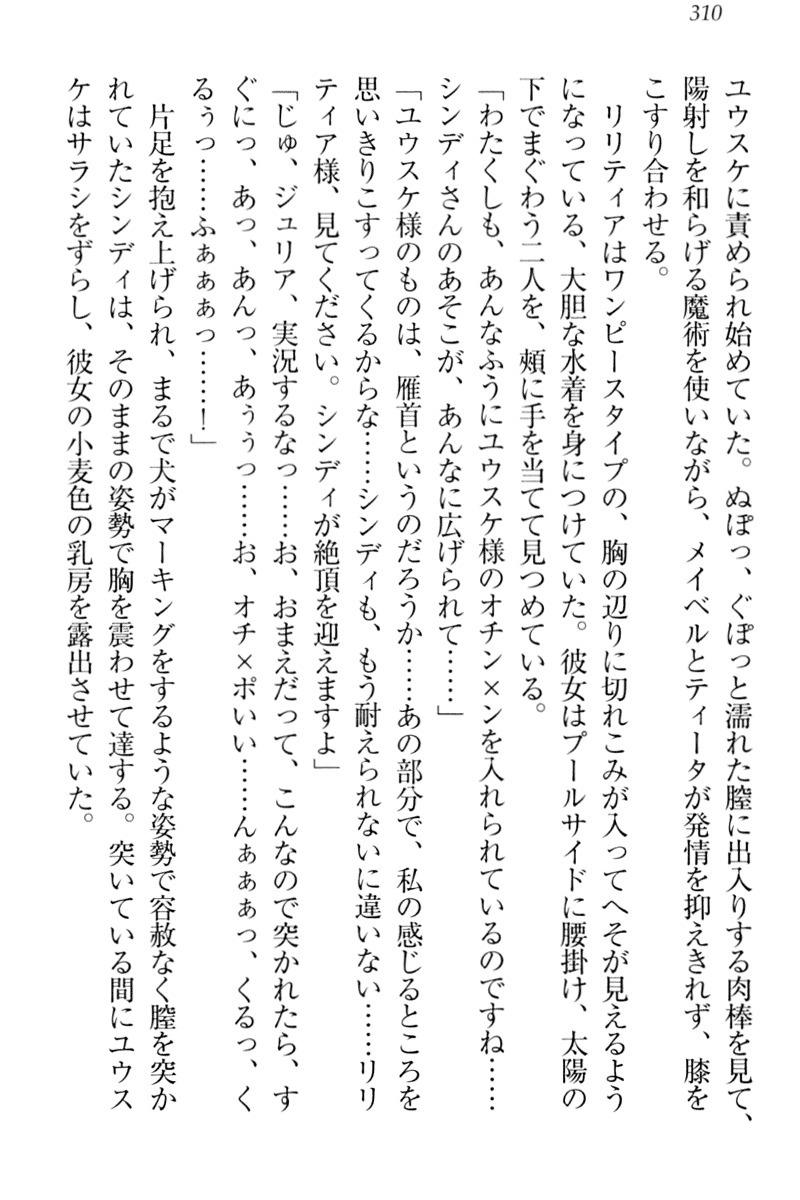 310
ユウスケに責められ始めていた。ぬぽっ、ぐぽっと濡れた膣に出入りする肉棒を見て、
陽射しを和らげる魔術を使いながら、メイベルとティータが発情を抑えきれず、膝を
こすり合わせる。
リリティアはワンピースタイプの、胸の辺りに切れこみが入ってへそが見えるよう
になっている、大胆な水着を身につけていた。彼女はプールサイドに腰掛け、太陽の
下でまぐわう二人を、頬に手を当てて見つめている。
「わたくしも、あんなふうにユウスケ様のオチン×ンを入れられているのですね……
シンディさんのあそこが、あんなに広げられて……」
「ユウスケ様のものは、雁首というのだろうか……あの部分で、私の感じるところを
思いきりこすってくるからな……シンディも、もう耐えられないに違いない……リリ
ティア様、見てください。シンディが絶頂を迎えますよ」
「じゅ、ジュリア、実況するなっ……お、おまえだって、こんなので突かれたら、す
ぐにっ、あっ、あんっ、あぅぅっ……お、オチ×ポいい……んぁぁぁっ、くるっ、く
るぅっ……ふぁぁぁっ……！」
片足を抱え上げられ、まるで犬がマーキングをするような姿勢で容赦なく膣を突か
れていたシンディは、そのままの姿勢で胸を震わせて達する。突いている間にユウス
ケはサラシをずらし、彼女の小麦色の乳房を露出させていた。